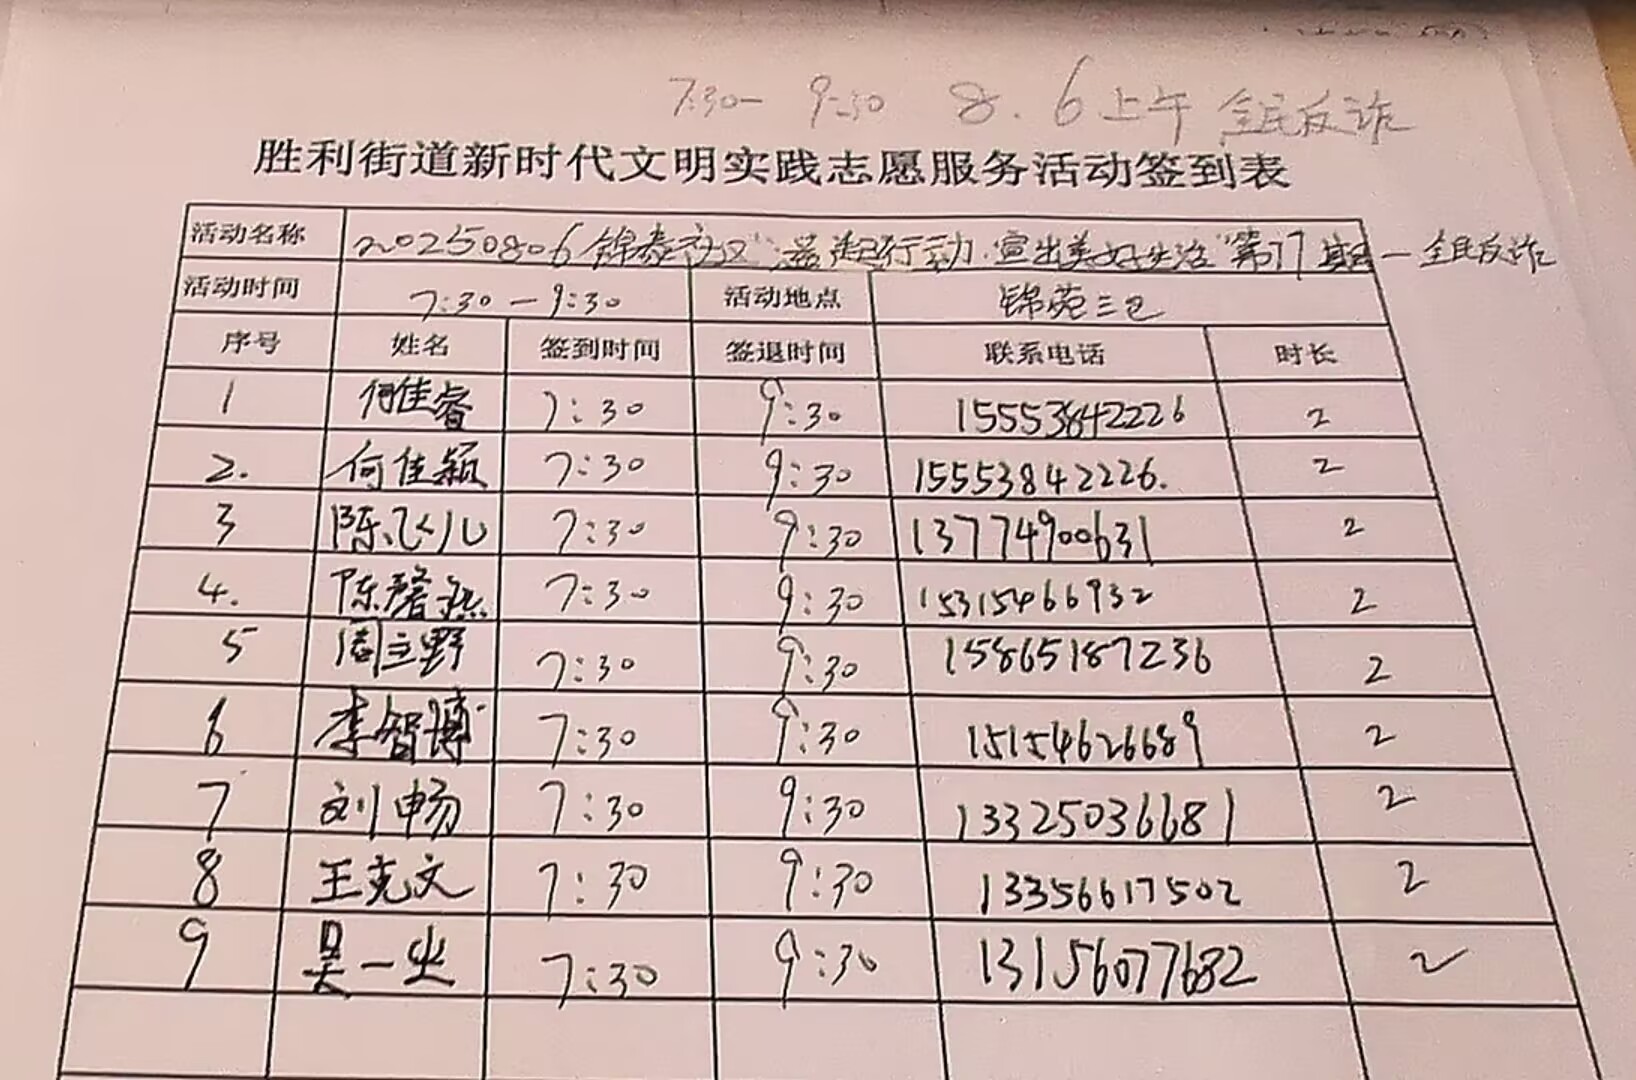 7:30— 9:30 8.6上午 全民反诈
胜利街道新时代文明实践志愿服务活动签到表
活动名称 20250806锦泰社区"益起行动·宣出美好生活"第17期—全民反诈
活动时间 7:30—9:30 活动地点 锦苑三区
序号 姓名 签到时间 签退时间 联系电话 时长
1 何佳睿 7:30 9:30 15553842226 2
2. 何佳颖 7:30 9:30 15553842226. 2
3 陈飞儿 7:30 9:30 13774900631 2
4. 陈馨 7:30 9:30 15315466932 2
5 周立野 7:30 9:30 15865187236 2
6 李智博 7:30 9:30 15154626689 2
7 刘畅 7:30 9:30 13325036681 2
8 王克文 7:30 9:30 13356617502 2
9 吴一 7:30 9:30 13156077682 2